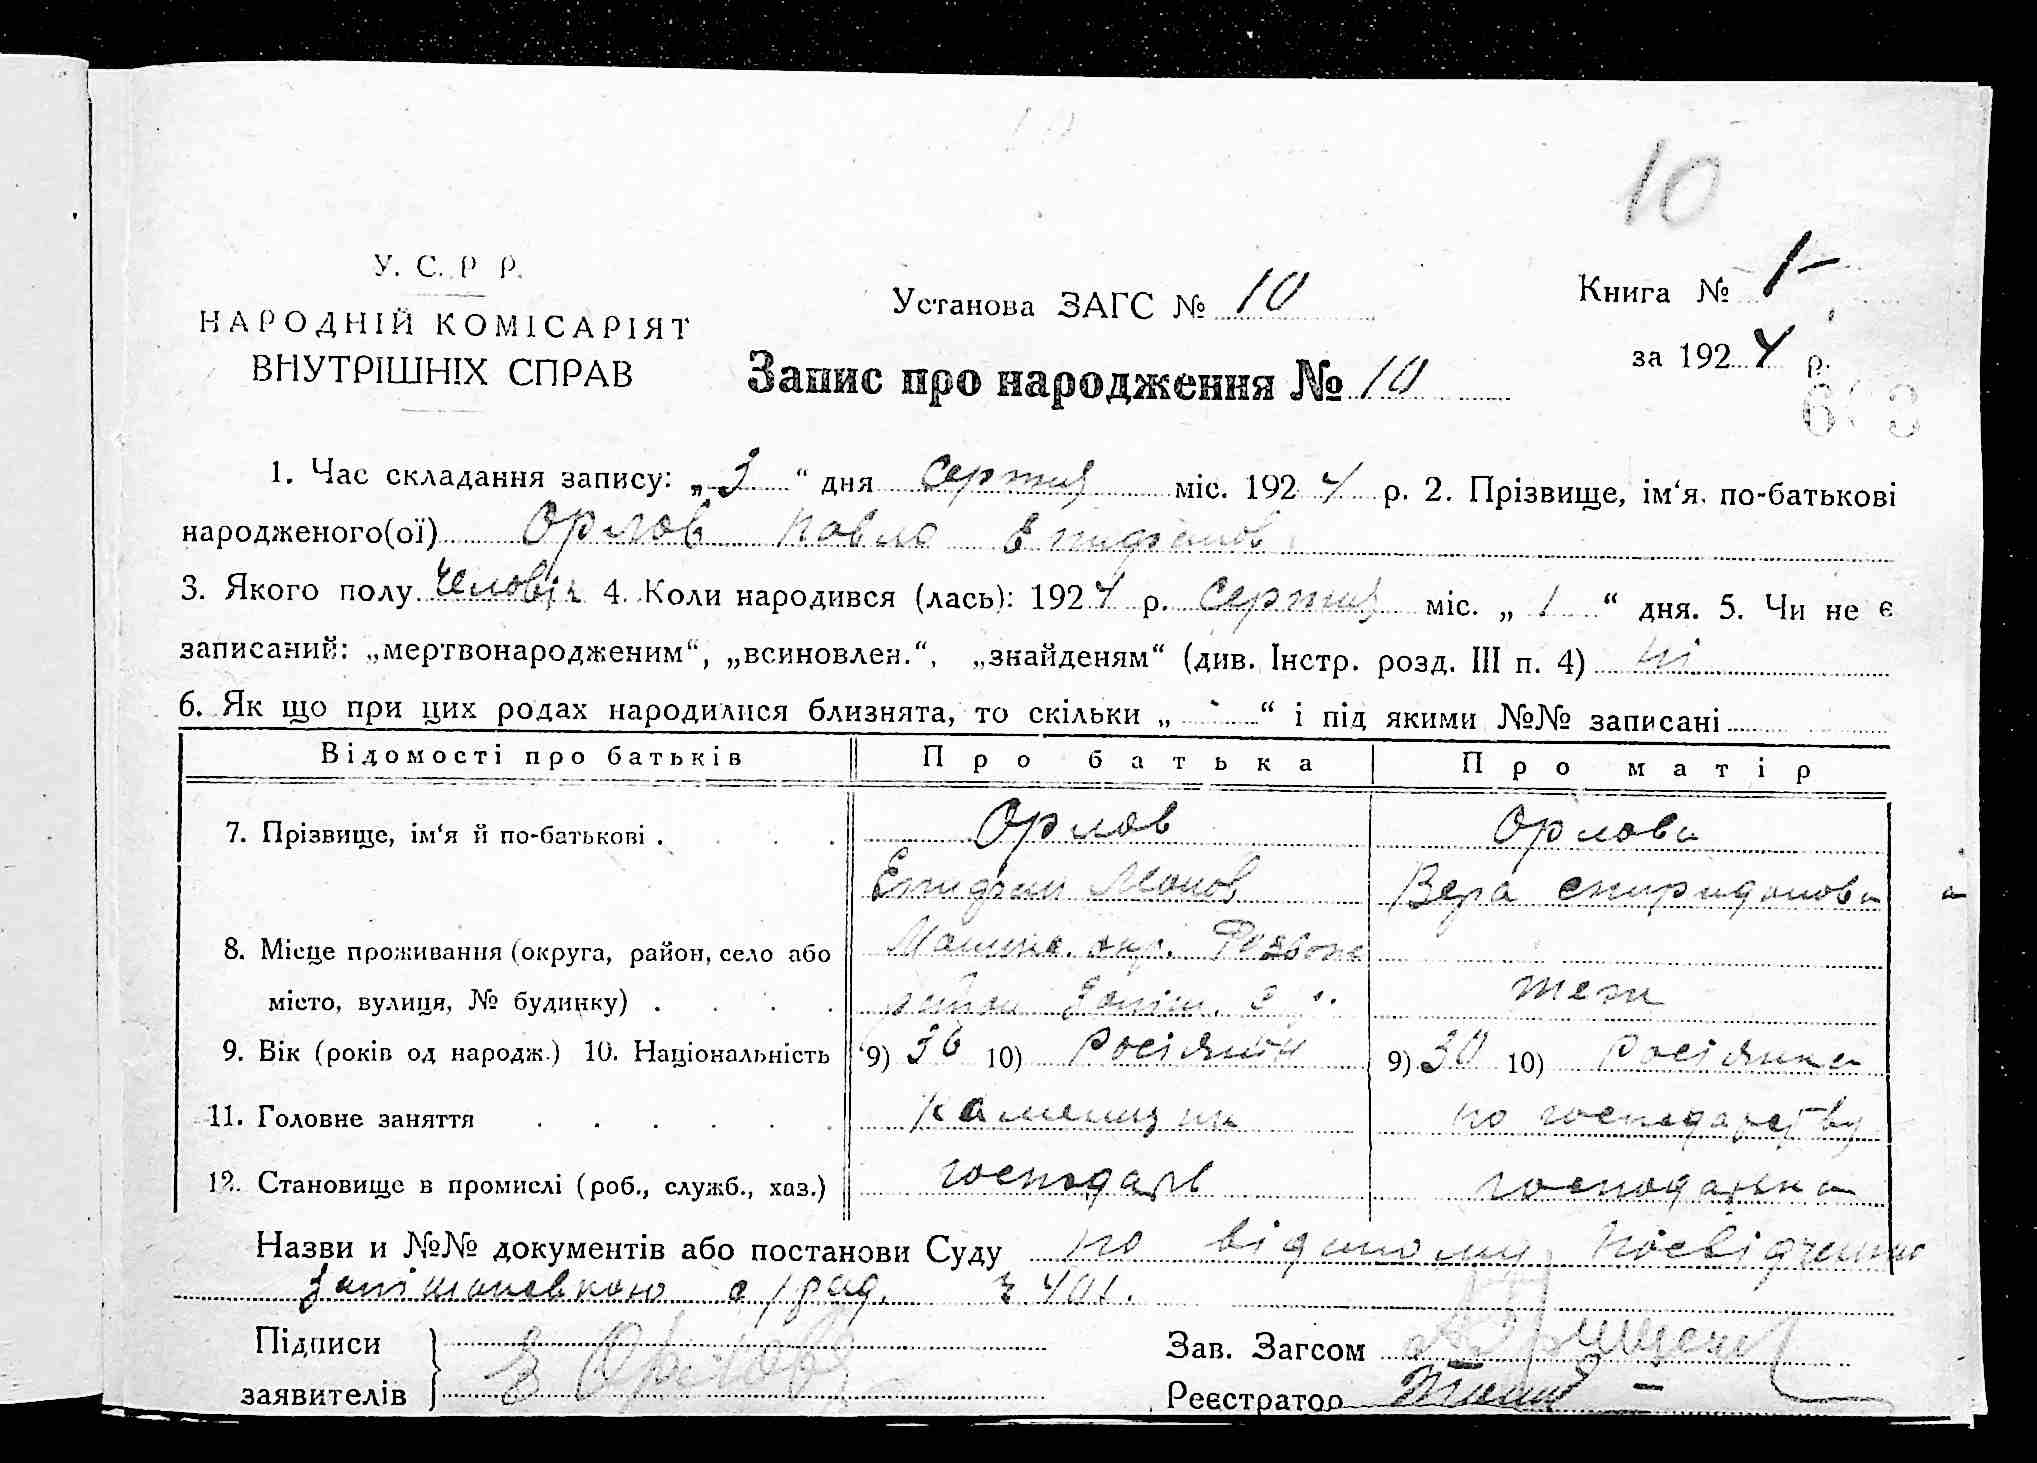 10
У. С. Р Р.
НАРОДНІЙ КОМІСАРІЯТ
ВНУТРІШНІХ СПРАВ
Установа ЗАГС № 10
Книга № 1
за 1924 р.
Запис про народження № 10
1. Час складання запису: „3“ дня серпня міс. 1924 р. 2. Прізвище, ім‘я, по-батькові
народженого(ої) Орлов Павло
3. Якого полу 4. Коли народився (лась): 1924 р. серпня міс. „1“ дня. 5. Чи не є
записаний: „мертвонародженим“, „всиновлен.“, „знайденям“ (див. Інстр. розд. III п. 4) ні
6. Як що при цих родах народилися близнята, то скільки „ “ і під якими №№ записані
Відомості про батьків Про батька Про матір
7. Прізвище, ім‘я й по-батькові . Орлов Орлова
Вера спиридонова
8. Місце проживання (округа, район, село або окр.
місто, вулиця, № будинку) . теж
9. Вік (років од народж.) 10. Національність 9) 36 10) Росіянин 9) 30 10) Росіянка
11. Головне заняття каменщик по господарству
12. Становище в промислі (роб., служб., хаз.) господарь господарька
Назви и №№ документів або постанови Суду по
с/рад. 401.
Підписи
заявителів
Орлов
Зав. Загсом
Реєстратор